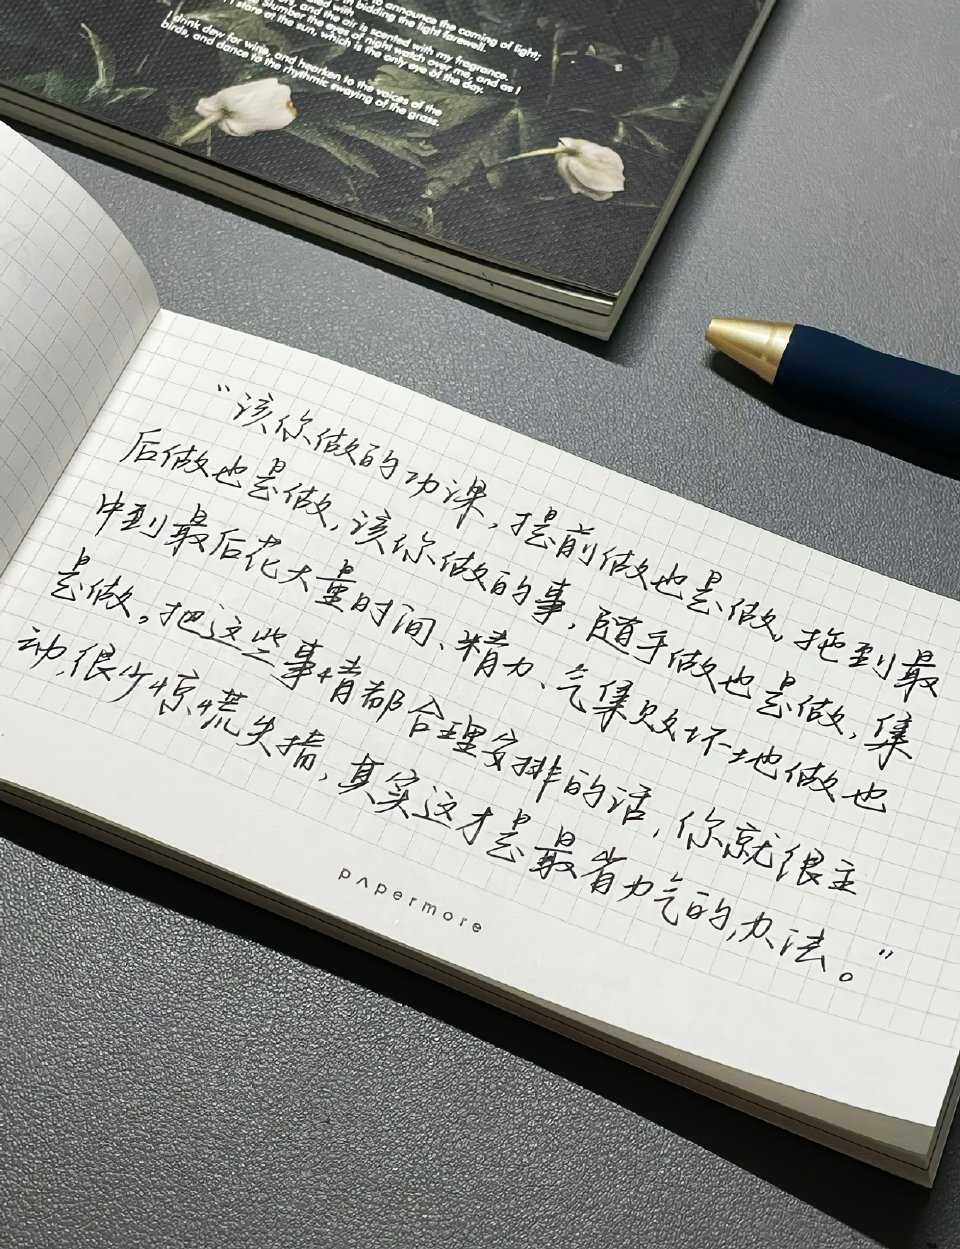 to announce the coming of light;
in bidding the light farewell.
and the air is scented with my fragrance.
slumber the eyes of night watch over me, and as I
I stare at the sun, which is the only eye of the day.
drink dew for wine, and hearken to the voices of the
birds, and dance to the rhythmic swaying of the grass.
“该你做的功课，提前做也是做，拖到最
后做也是做，该你做的事，随手做也是做，集
中到最后花大量时间、精力、气集败坏地做也
是做。把这些事情都合理安排的话，你就很主
动，很少惊慌失措，其实这才是最省力气的办法。”
papermore